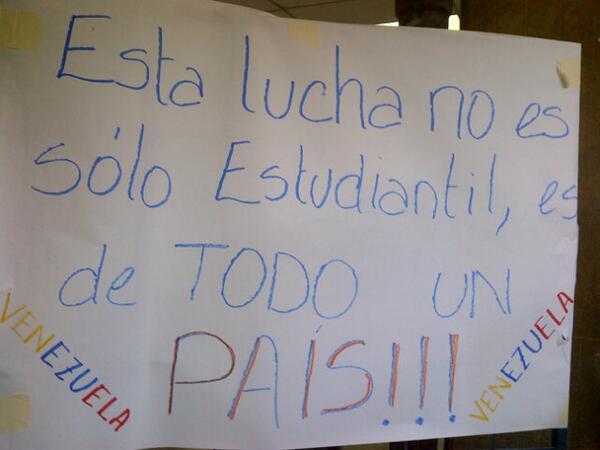 Esta lucha no es
sólo Estudiantil, es
de TODO UN
PAÍS!!!
VENEZUELA
VENEZUELA